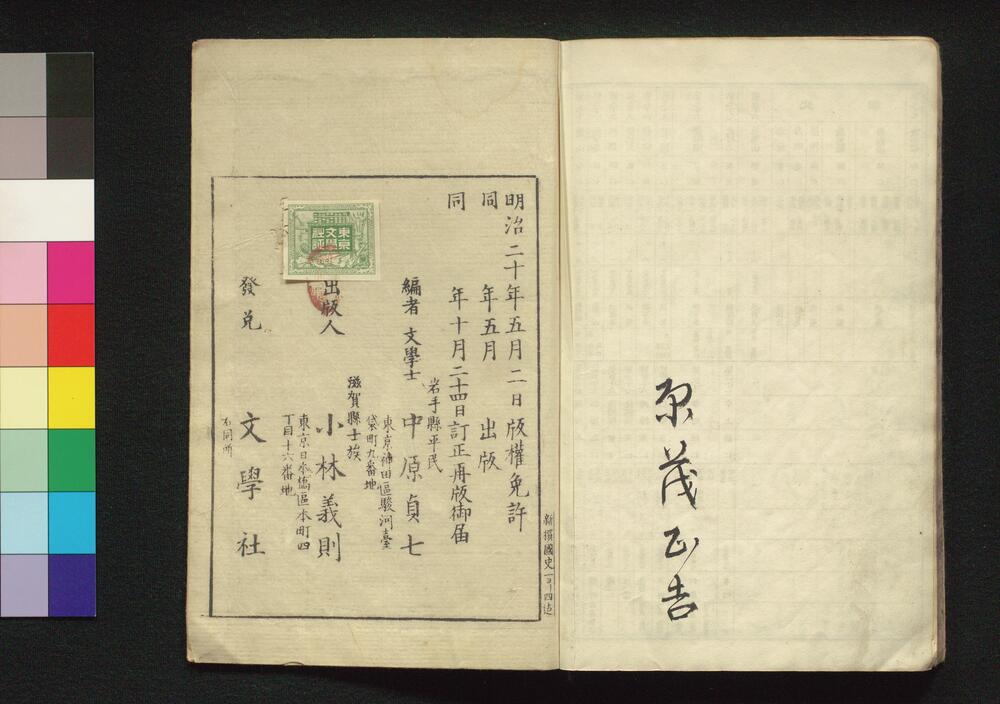 原茂正吉
明治二十年五月二日版權免許
同年五月出版
同年十月二十四日訂正再版御届
編者
文學士
岩手縣平民
中原貞七
東京神田區駿河臺
袋町九番地
出版人
滋賀縣士族
小林義則
東京日本橋區本町四
丁目十六番地
發兌
文學社
東京
文學
社印
新撰國史